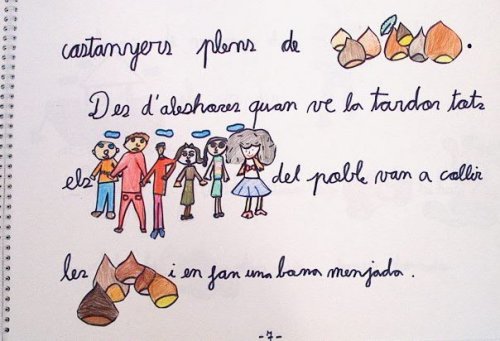 castanyers plens de .
Des d'aleshores quan ve la tardor tots
els del poble van a collir
les i en fan una bona menjada.
-7-